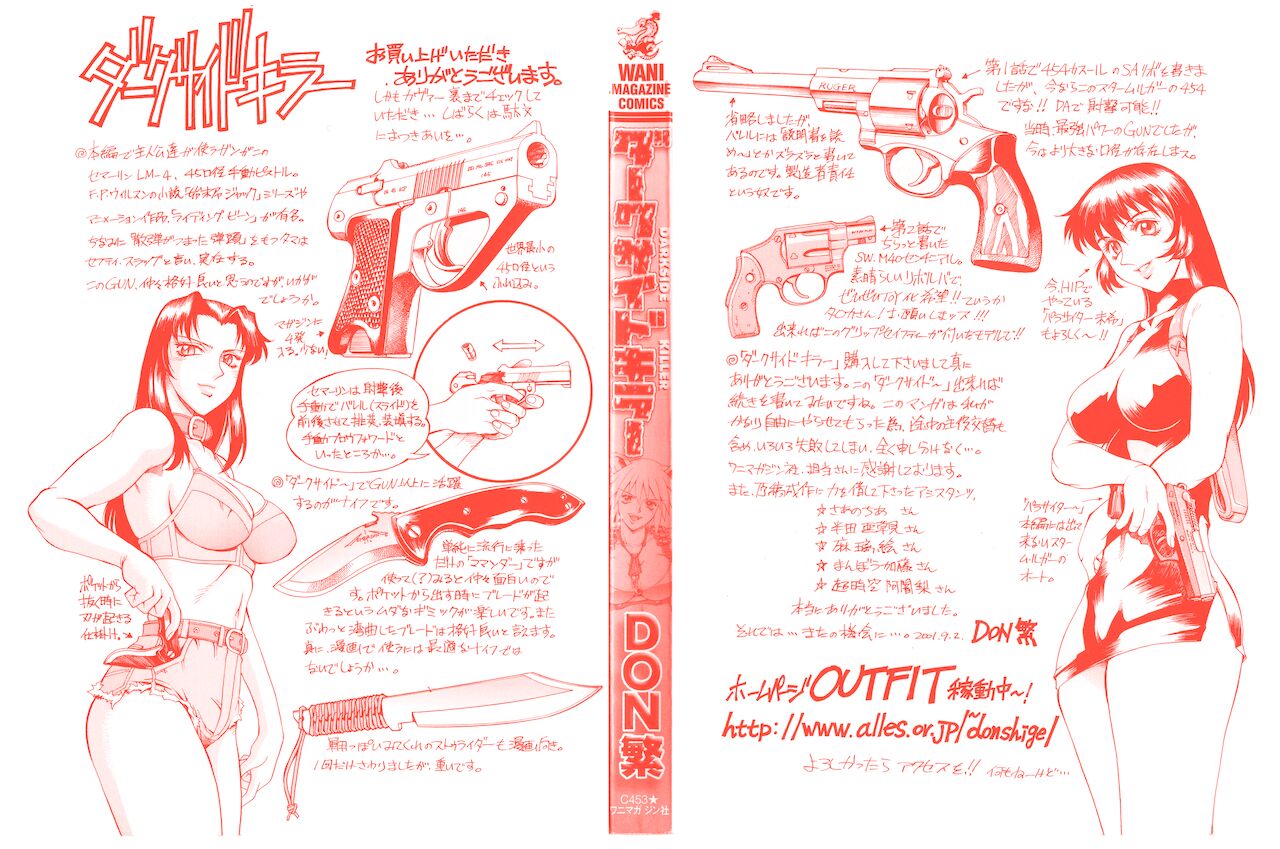 ダークサイドキラー
お買い上げいただき
ありがとうございます。
しかもカヴァー裏までチェックして
いただき…しばらくは駄文
におつきあいを…。
◎本編で主人公達が使うガンがこの
セマーリンLM-4、45口径手動ピストル。
F.P.ウィルスンの小説「始末屋ジャック」シリーズや
アニメーション作品「ライディングビーン」が有名。
ちなみに「散弾がつまった弾頭」をもつタマは
セフティ・スラッグと言い、実在する。
このGUN、仲々格好良いと思うのですが、いかが
でしょうか。
世界最小の
45口径という
ふれ込み。
マガジンに
4発
入る。少ない!
セマーリンは射撃後
手動でバレル(スライド)を
前後させて排莢、装填する。
手動ブローフォワードと
いったところか…。
◎「ダークサイド〜」でGUN以上に活躍
するのがナイフです。
単純に流行に乗った
だけの「コマンダー」ですが
使って(?)みると仲々面白いので
す。ポケットから出す時にブレードが起
きるというムダなギミックが楽しいです。また
ぶわっと湾曲したブレードは格好良いと言えます。
真に、漫画で使うには最適なナイフでは
ないでしょうか…。
ポケットから
抜く時に
刃が起きる
仕掛け。
1回だけさわりましたが、重いです。
WANI
MAGAZINE
COMICS
ダークサイドキラー
DARKSIDE KILLER
DON繁
C453★
ワニマガジン社
RUGER
第1話で454カスールのSAリボを書きま
したが、今ならこのスタームルガーの454
ですな!! DAで射撃可能!!
当時、最強パワーのGUNでしたが、
今はより大きな口径が存在しまス。
省略しましたが、
バレルには「説明書を読
め〜」とかズラズラと書いて
あるのです。製造者責任
という奴です。
第2話で
ちらっと書いた
SW.M40センチニアル。
素晴らしいリボルバで、
ぜひぜひTOY化希望!!というか
タナカさん!お願いしまッス!!!
出来ればこのグリップセイフティーが付いたモデルで!!
今、HIPで
やっている
「パラサイター未希」
もよろしく〜!!
◎「ダークサイドキラー」購入して下さいまして真に
ありがとうございます。この「ダークサイド〜」出来れば
続きを書いてみたいですね。このマンガは私が
かなり自由にやらせてもらった為、途中の主役交替も
含め、いろいろ失敗してしまい、全く申しわけなく…。
ワニマガジン社、担当さんに感謝しております。
また、原稿作作に力を貸して下さったアシスタンツ、
☆さわのちあ さん
☆半田亜季良 さん
☆麻瑞絵 さん
☆まんぼう加藤 さん
☆超時空阿闍梨 さん
本当にありがとうございました。
それでは…またの機会に…。2001.9.2. DON繁
「パラサイター〜」
本編には出て
来ないスター
ムルガーの
オート。
ホームページOUTFIT稼動中〜!
http://www.alles.or.jp/~donshige/
よろしかったら アクセスを!! 何もねーけど…